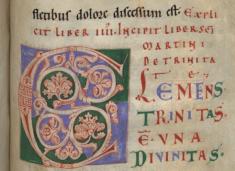 flectibus dolore discessum est. EXPLI
CIT LIBER IIII. INCIPIT LIBER SCI
MARTINI
DE TRINITA
TE
CLEMENS
TRINITAS.
E. VNA
DIVINITAS.